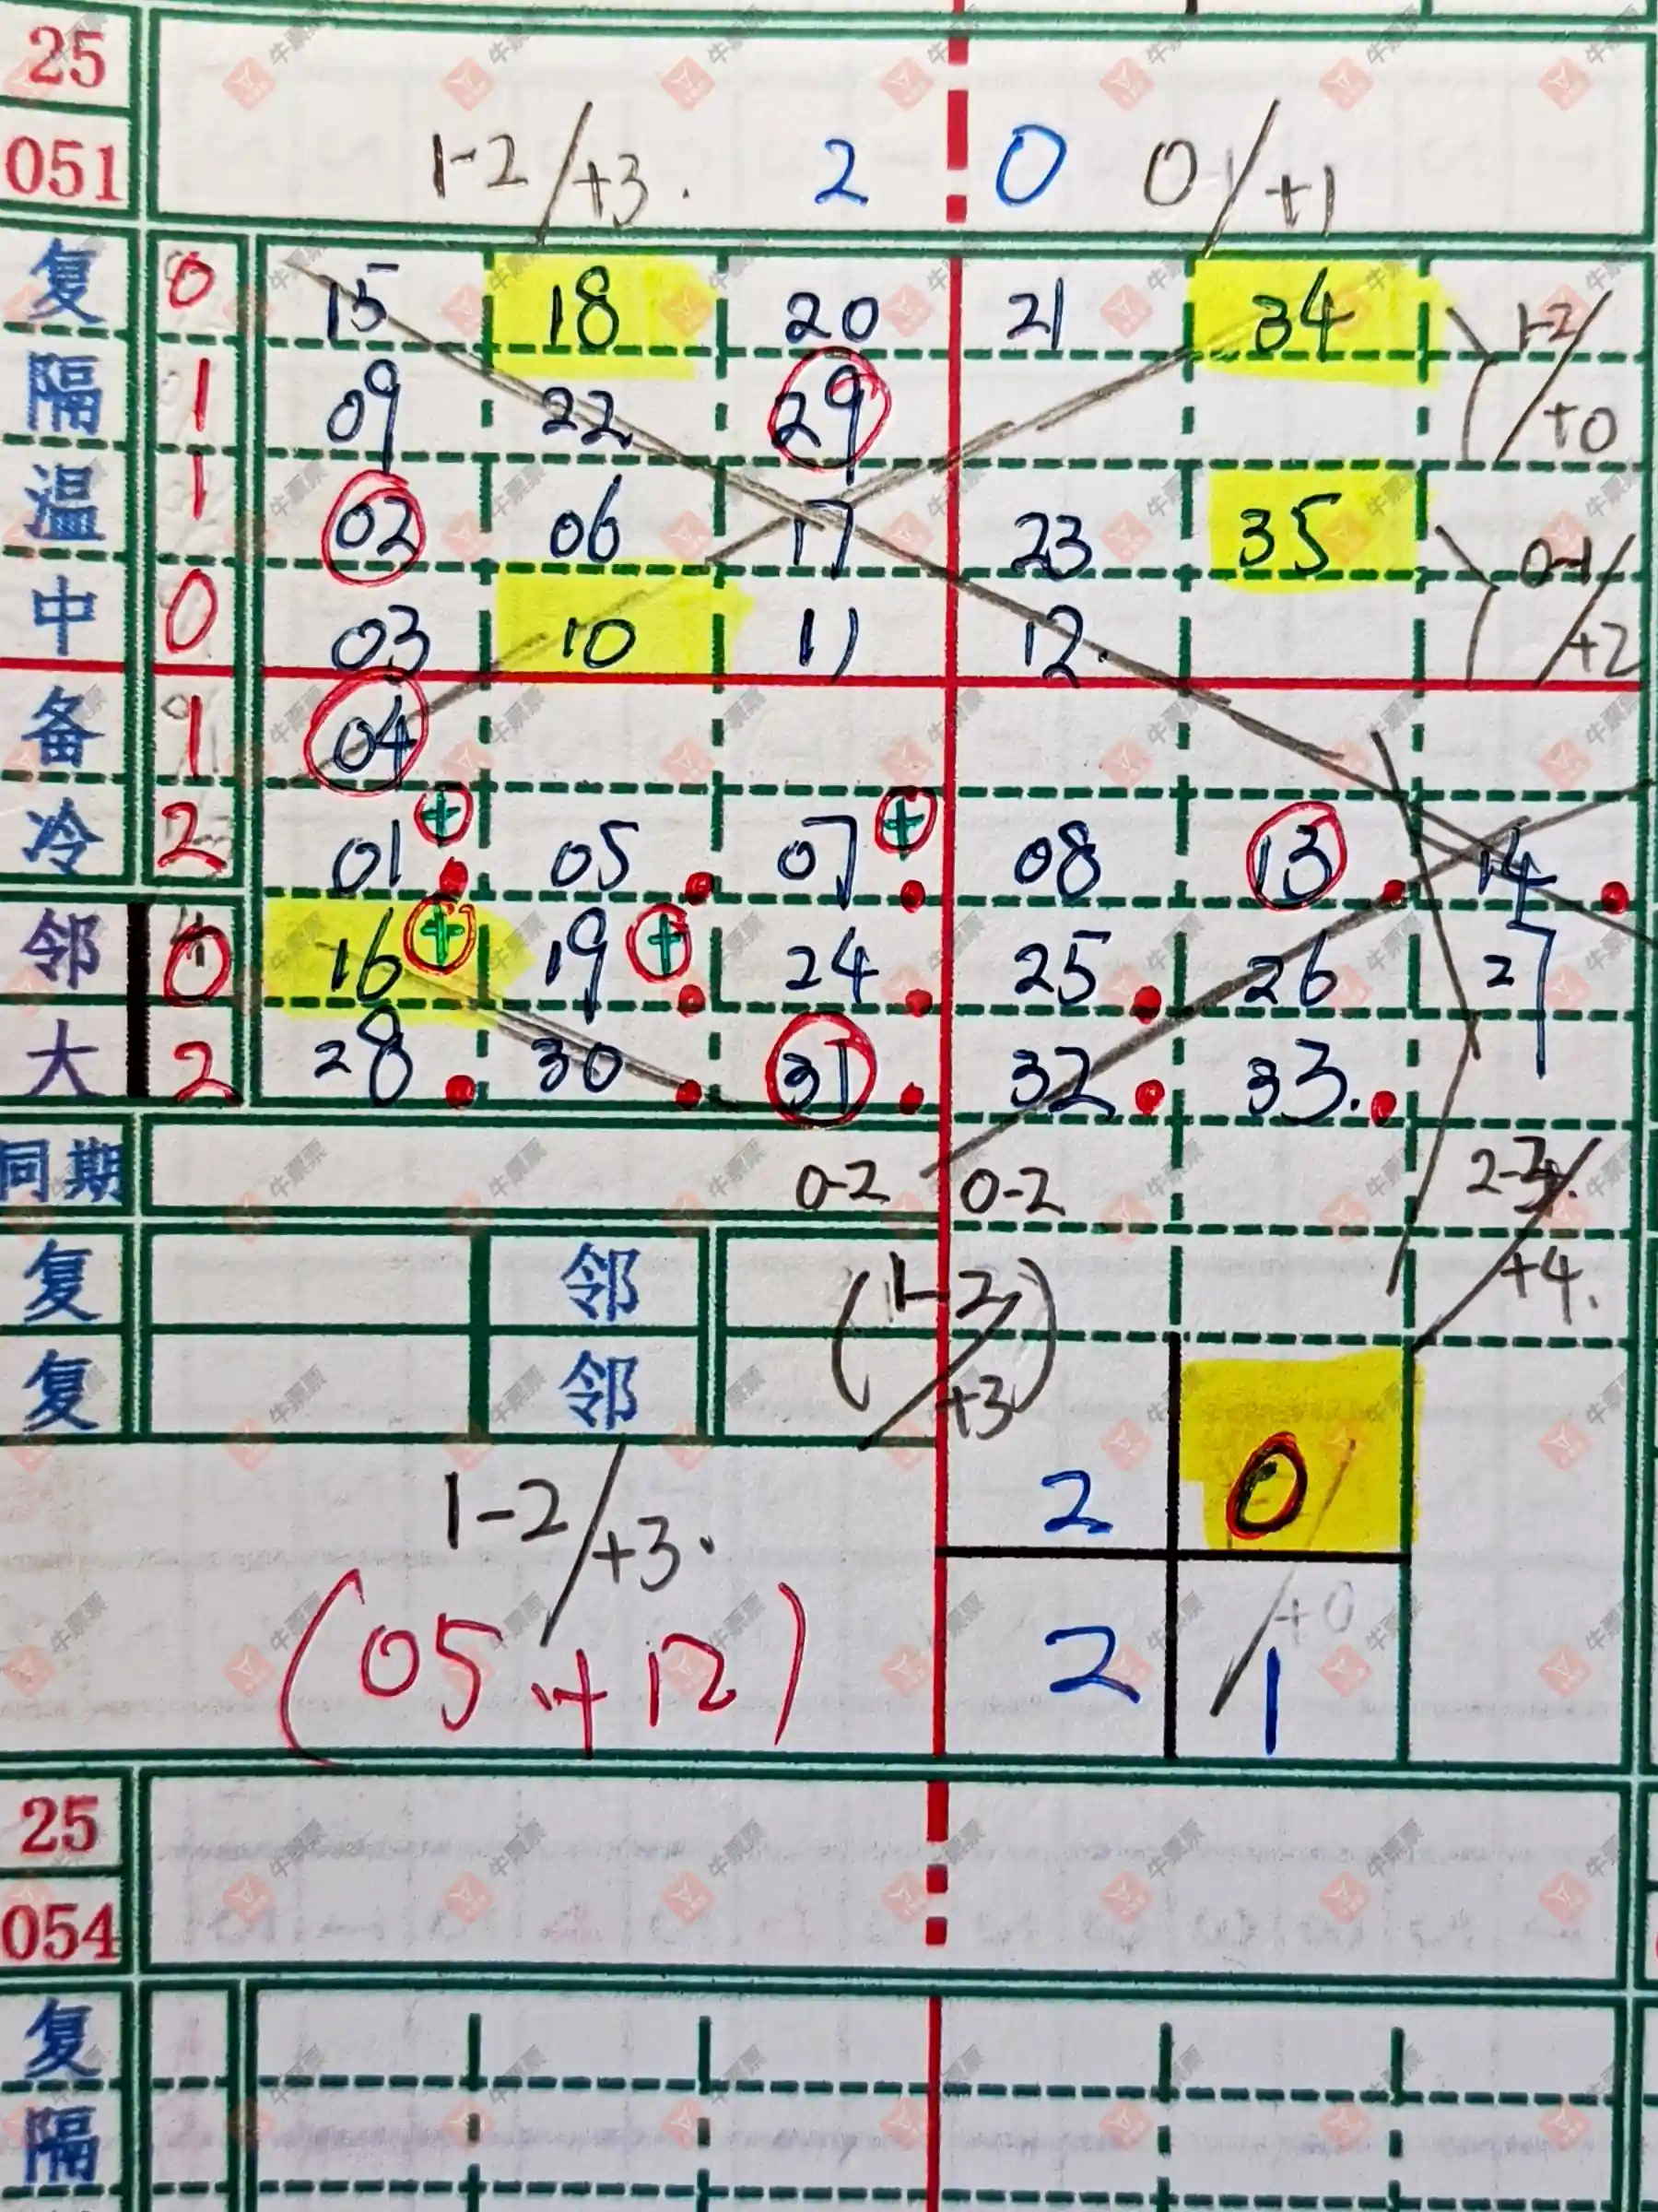 25
051 1-2/+3. 2 0 0/+1
复 0 15 18 20 21 34 1-2/+0
隔 1 09 22 29
温 1 02 06 17 23 35 0-1/+2
中 0 03 10 11 12.
备 1 04
冷 2 01 + 05 07 + 08 13 14
邻 0 16 + 19 + 24 25 26 27
大 2 28 30 31 32 33.
同期 0-2 0-2
复 邻 (1-2/+3) +4.
复 邻
1-2/+3. 2 0
(05+12) 2 1 +0
25
054
复
隔
牛票票